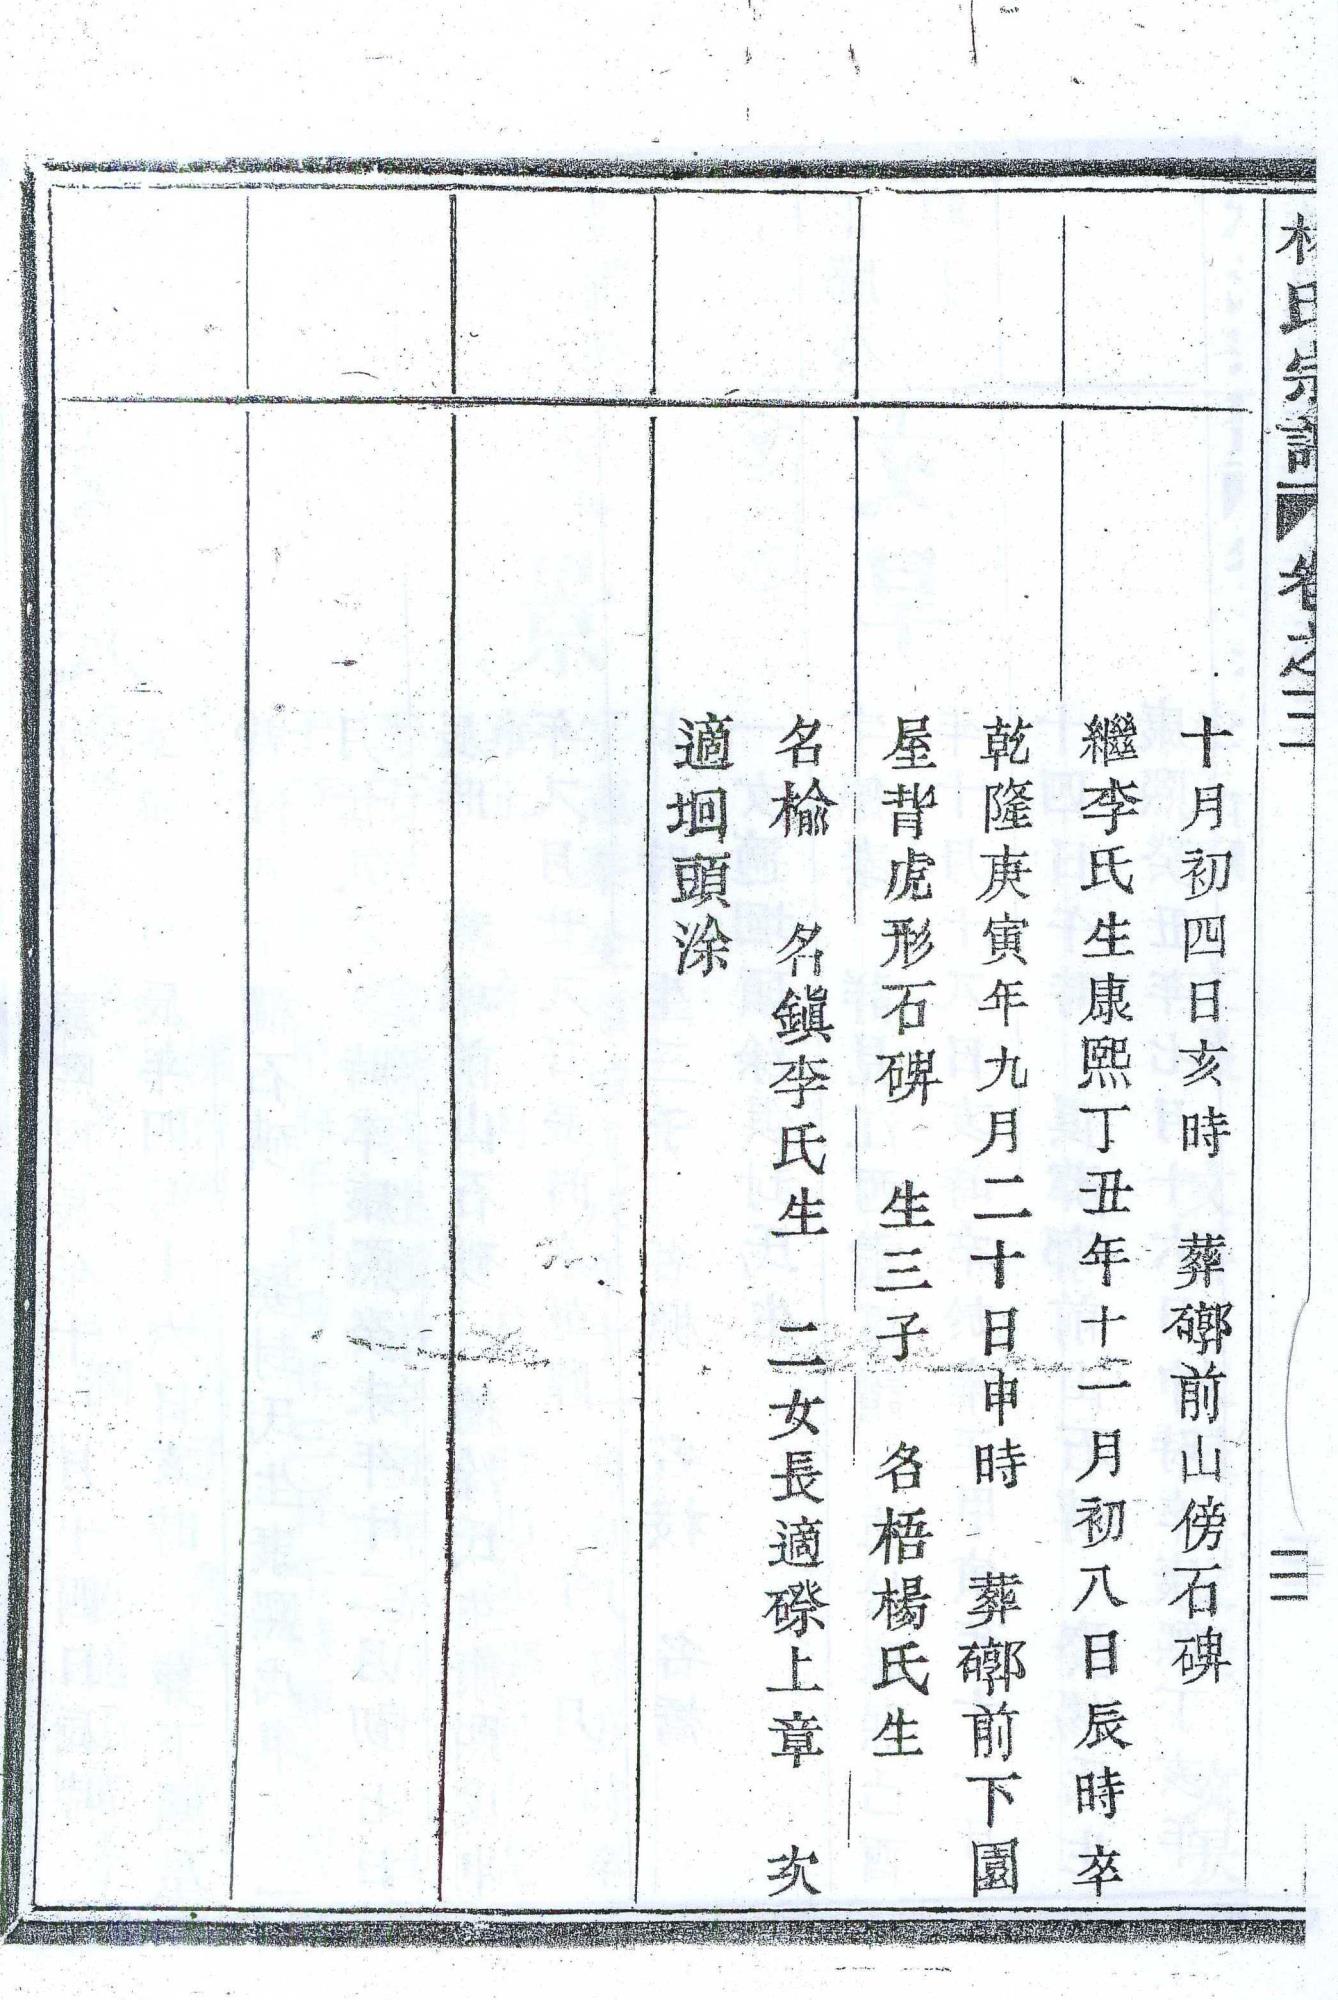 林氏宗譜 卷之二
三
十月初四日亥時 葬磜前山傍石碑
繼李氏生康熙丁丑年十一月初八日辰時卒
乾隆庚寅年九月二十日申時 葬磜前下園
屋背虎形石碑 生三子 名梧楊氏生
名榆 名鎭李氏生 二女長適磜上章 次
適垇頭涂